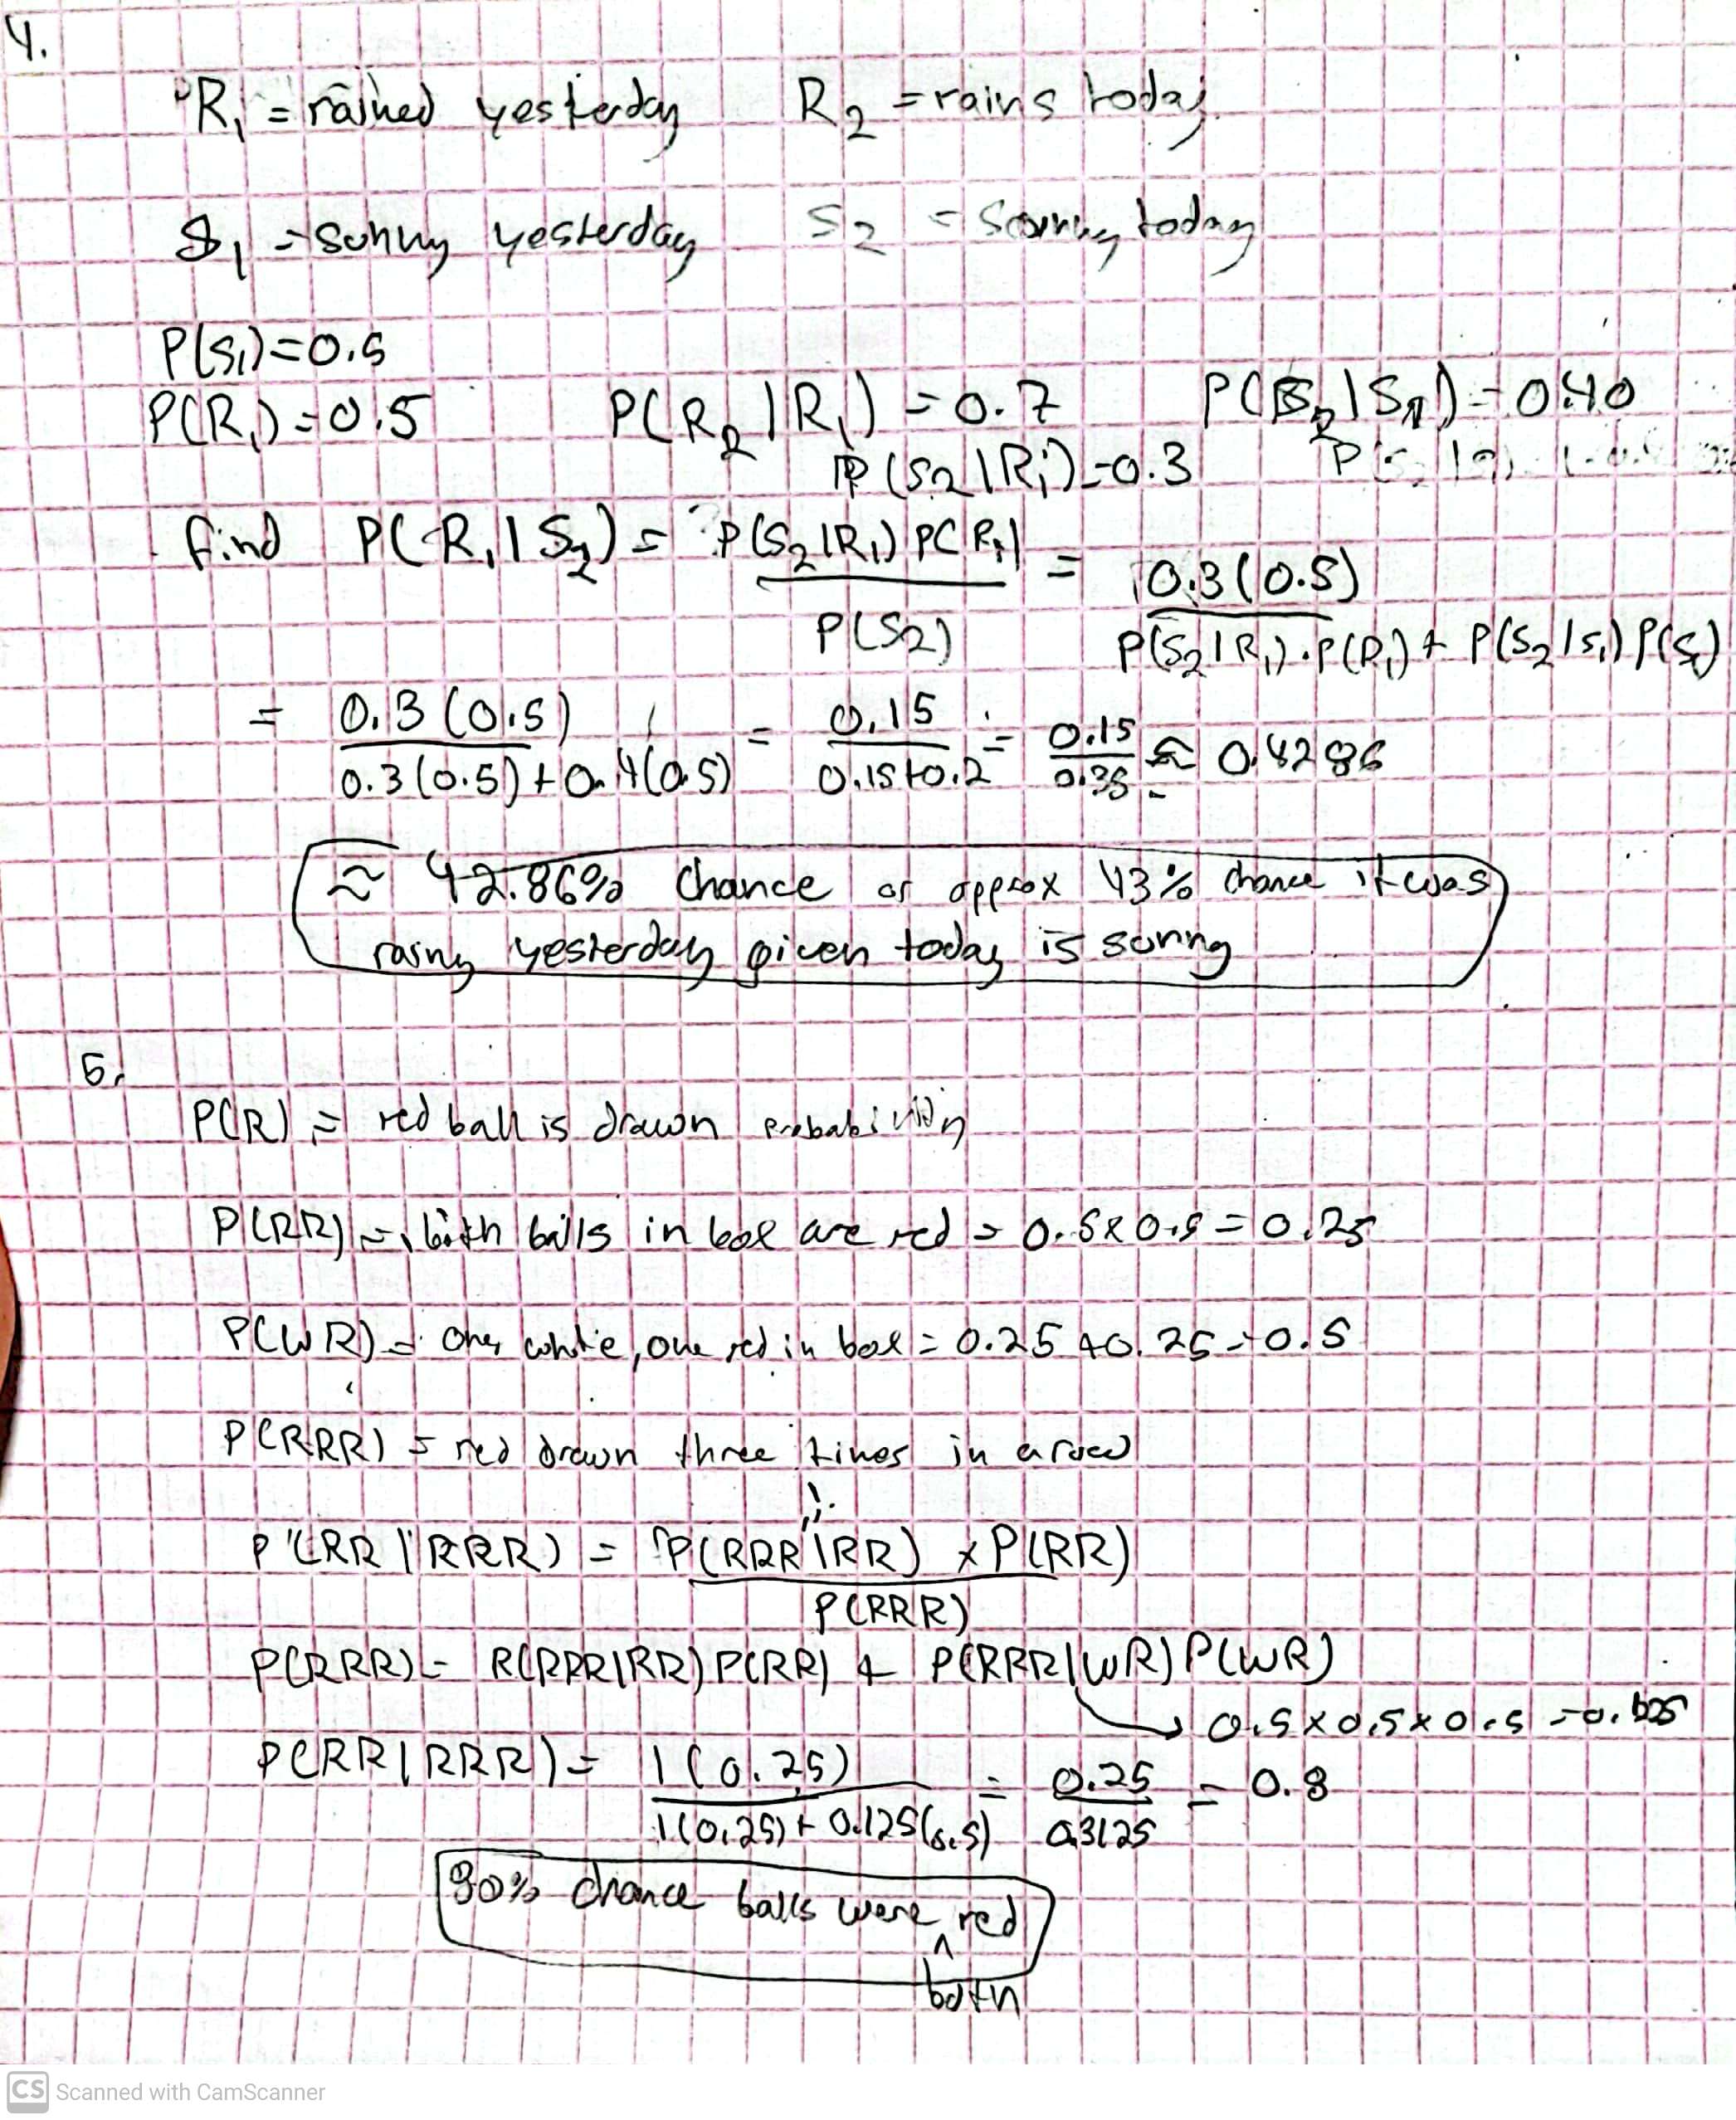 4.
R₁ = rained yesterday R₂ = rains today
S₁ = sunny yesterday S₂ = sunny today
P(S₁) = 0.5
P(R₁) = 0.5 P(R₂|R₁) = 0.7 P(S₂|S₁) = 0.40
P(S₂|R₁) = 0.3
find P(R₁|S₂) = P(S₂|R₁) P(R₁) / P(S₂) = 0.3(0.5) / P(S₂|R₁)·P(R₁) + P(S₂|S₁) P(S₁)
= 0.3(0.5) / 0.3(0.5) + 0.4(0.5) = 0.15 / 0.15+0.2 = 0.15 / 0.35 ≈ 0.4286
≈ 42.86% chance or approx 43% chance it was
rainy yesterday given today is sunny
5.
P(R) = red ball is drawn probability
P(RR) = both balls in box are red = 0.5 x 0.5 = 0.25
P(WR) = one white, one red in box = 0.25 + 0.25 = 0.5
P(RRR) = red drawn three times in a row
P(RR|RRR) = P(RRR|RR) x P(RR) / P(RRR)
P(RRR) = R(RRR|RR) P(RR) + P(RRR|WR) P(WR)
0.5 x 0.5 x 0.5 = 0.125
P(RR|RRR) = 1(0.25) / 1(0.25) + 0.125(0.5) = 0.25 / 0.3125 = 0.8
80% chance balls were ^ red
both
CS Scanned with CamScanner